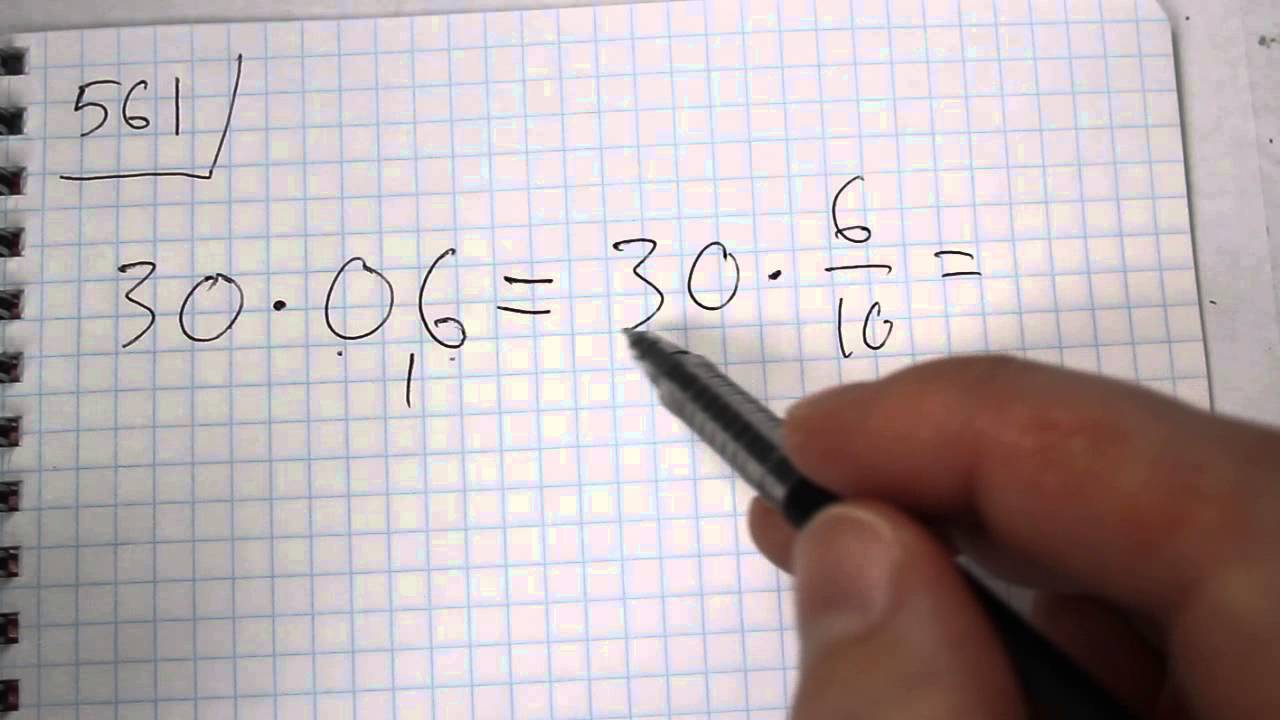 561
30 · 0,6 = 30 · 6/10 =